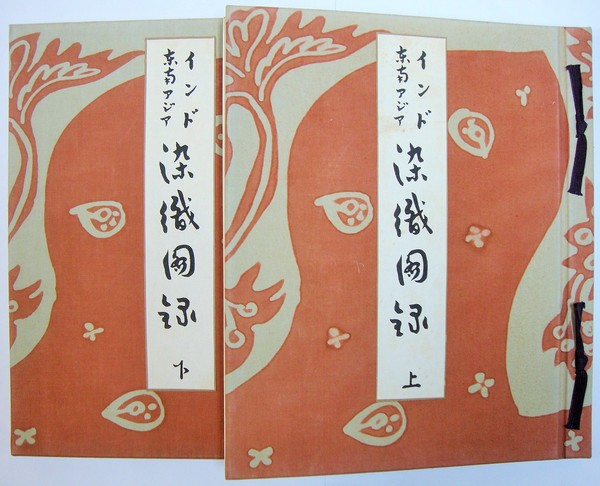 インド
東南アジア
染織図録
上
インド
東南アジア
染織図録
下